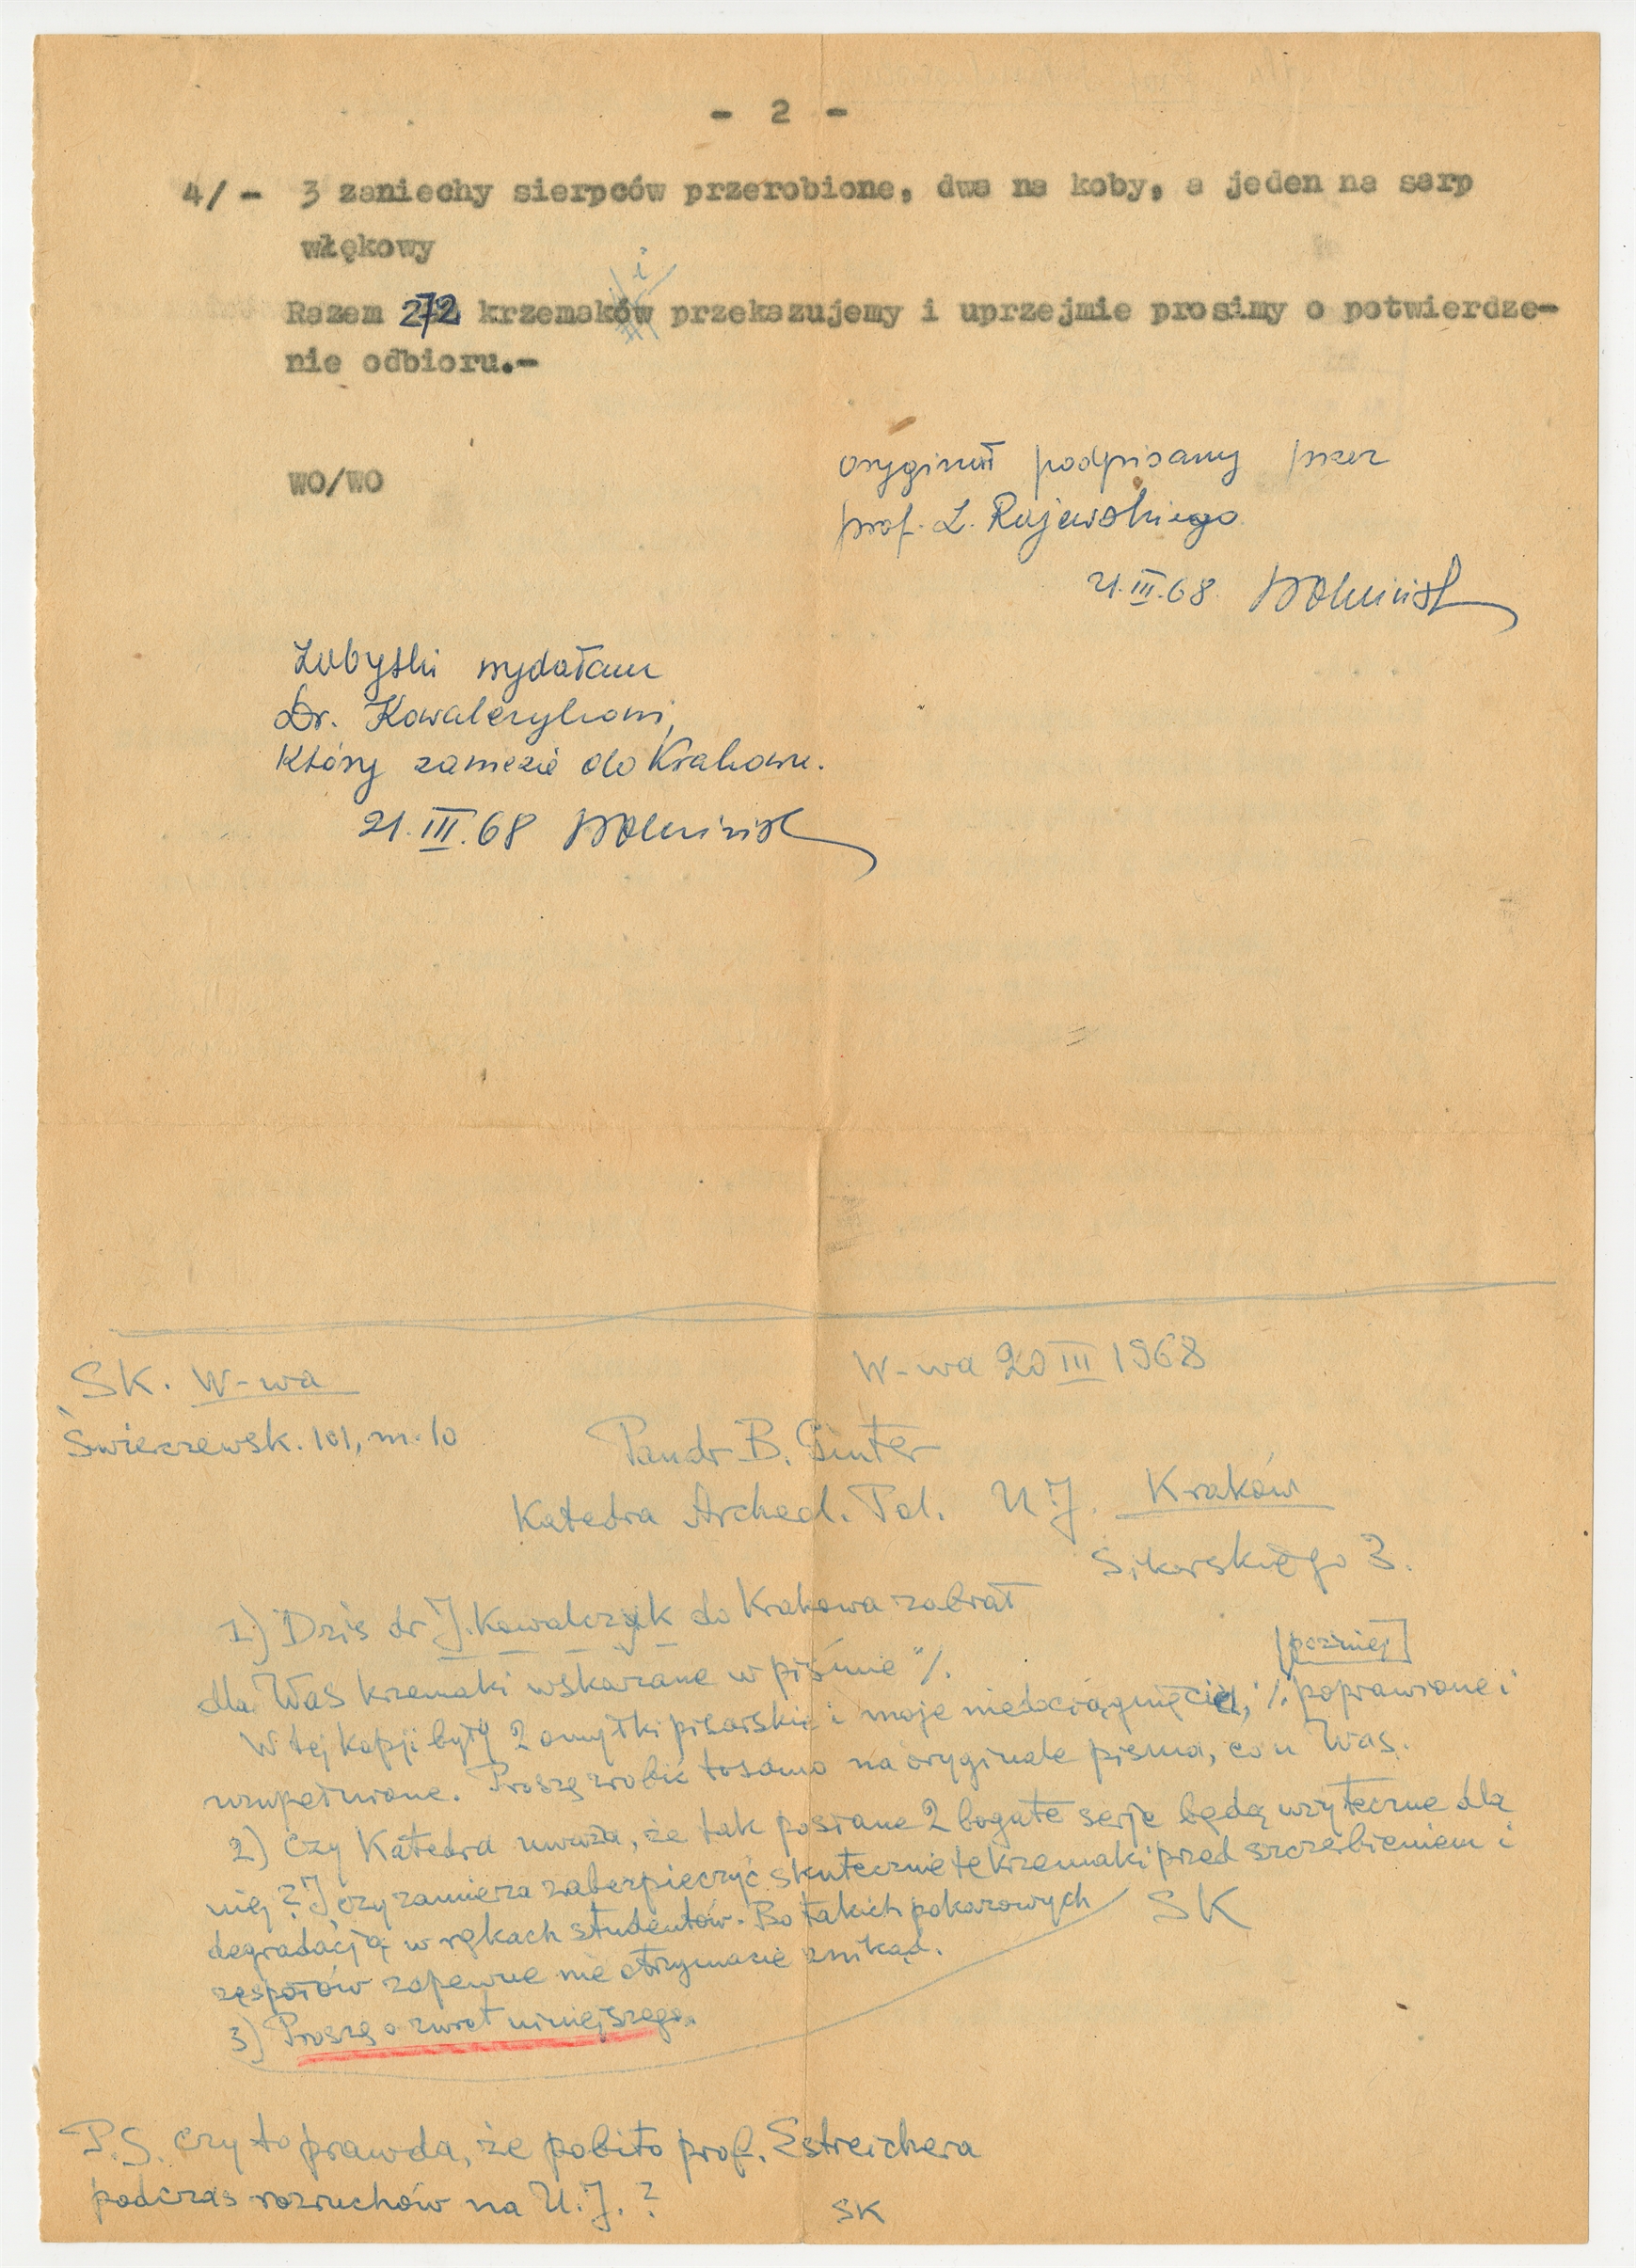 - 2 -
4/ - 3 zaniechy sierpców przerobione, dwa na koby, a jeden na sarp
włękowy
i
Razem 272 krzemaków przekazujemy i uprzejmie prosimy o potwierdze-
nie odbioru.-
WO/WO
oryginał podpisany przez
prof. L. Rajewskiego
21.III.68
Zabytki wydałam
Dr. Kowalczykowi,
który zawiezie do Krakowa.
21.III.68
SK. W-wa
W-wa 20 III 1968
Świerczewsk. 101, m. 10
Pan dr B. Ginter
Katedra Archeol. Pol. U.J. Kraków
Sikorskiego 3.
1) Dziś dr J. Kowalczyk do Krakowa zabrał
dla Was krzemaki wskazane w piśmie %.
[poczniej]
W tej kopji były 2 omyłki pisarskie i moje niedociągnięcia, %. poprawione i
uzupełnione. Proszę zrobić tosamo na oryginale pisma, co u Was.
2) Czy Katedra uważa, że tak posłane 2 bogate serje będą użyteczne dla
niej? I czy zamierza zabezpieczyć skutecznie te krzemaki przed szczerbieniem i
degradacją w rękach studentów. Bo takich pokazowych SK
zespołów zapewne nie otrzymacie znikąd.
3) Proszę o zwrot niniejszego.
P.S. czy to prawda, że pobito prof. Estreichera
podczas rozruchów na U.J.? SK